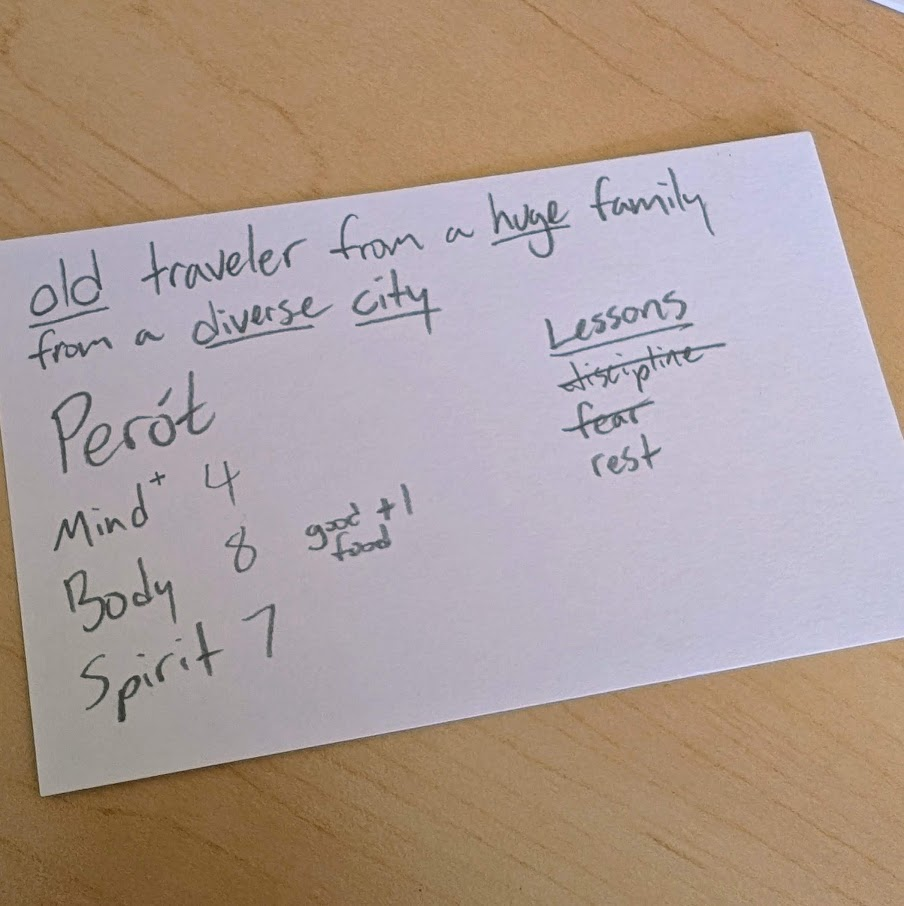 old traveler from a huge family
from a diverse city
Perót
Mind+ 4
Body 8 good +1
food
Spirit 7
Lessons
discipline
fear
rest